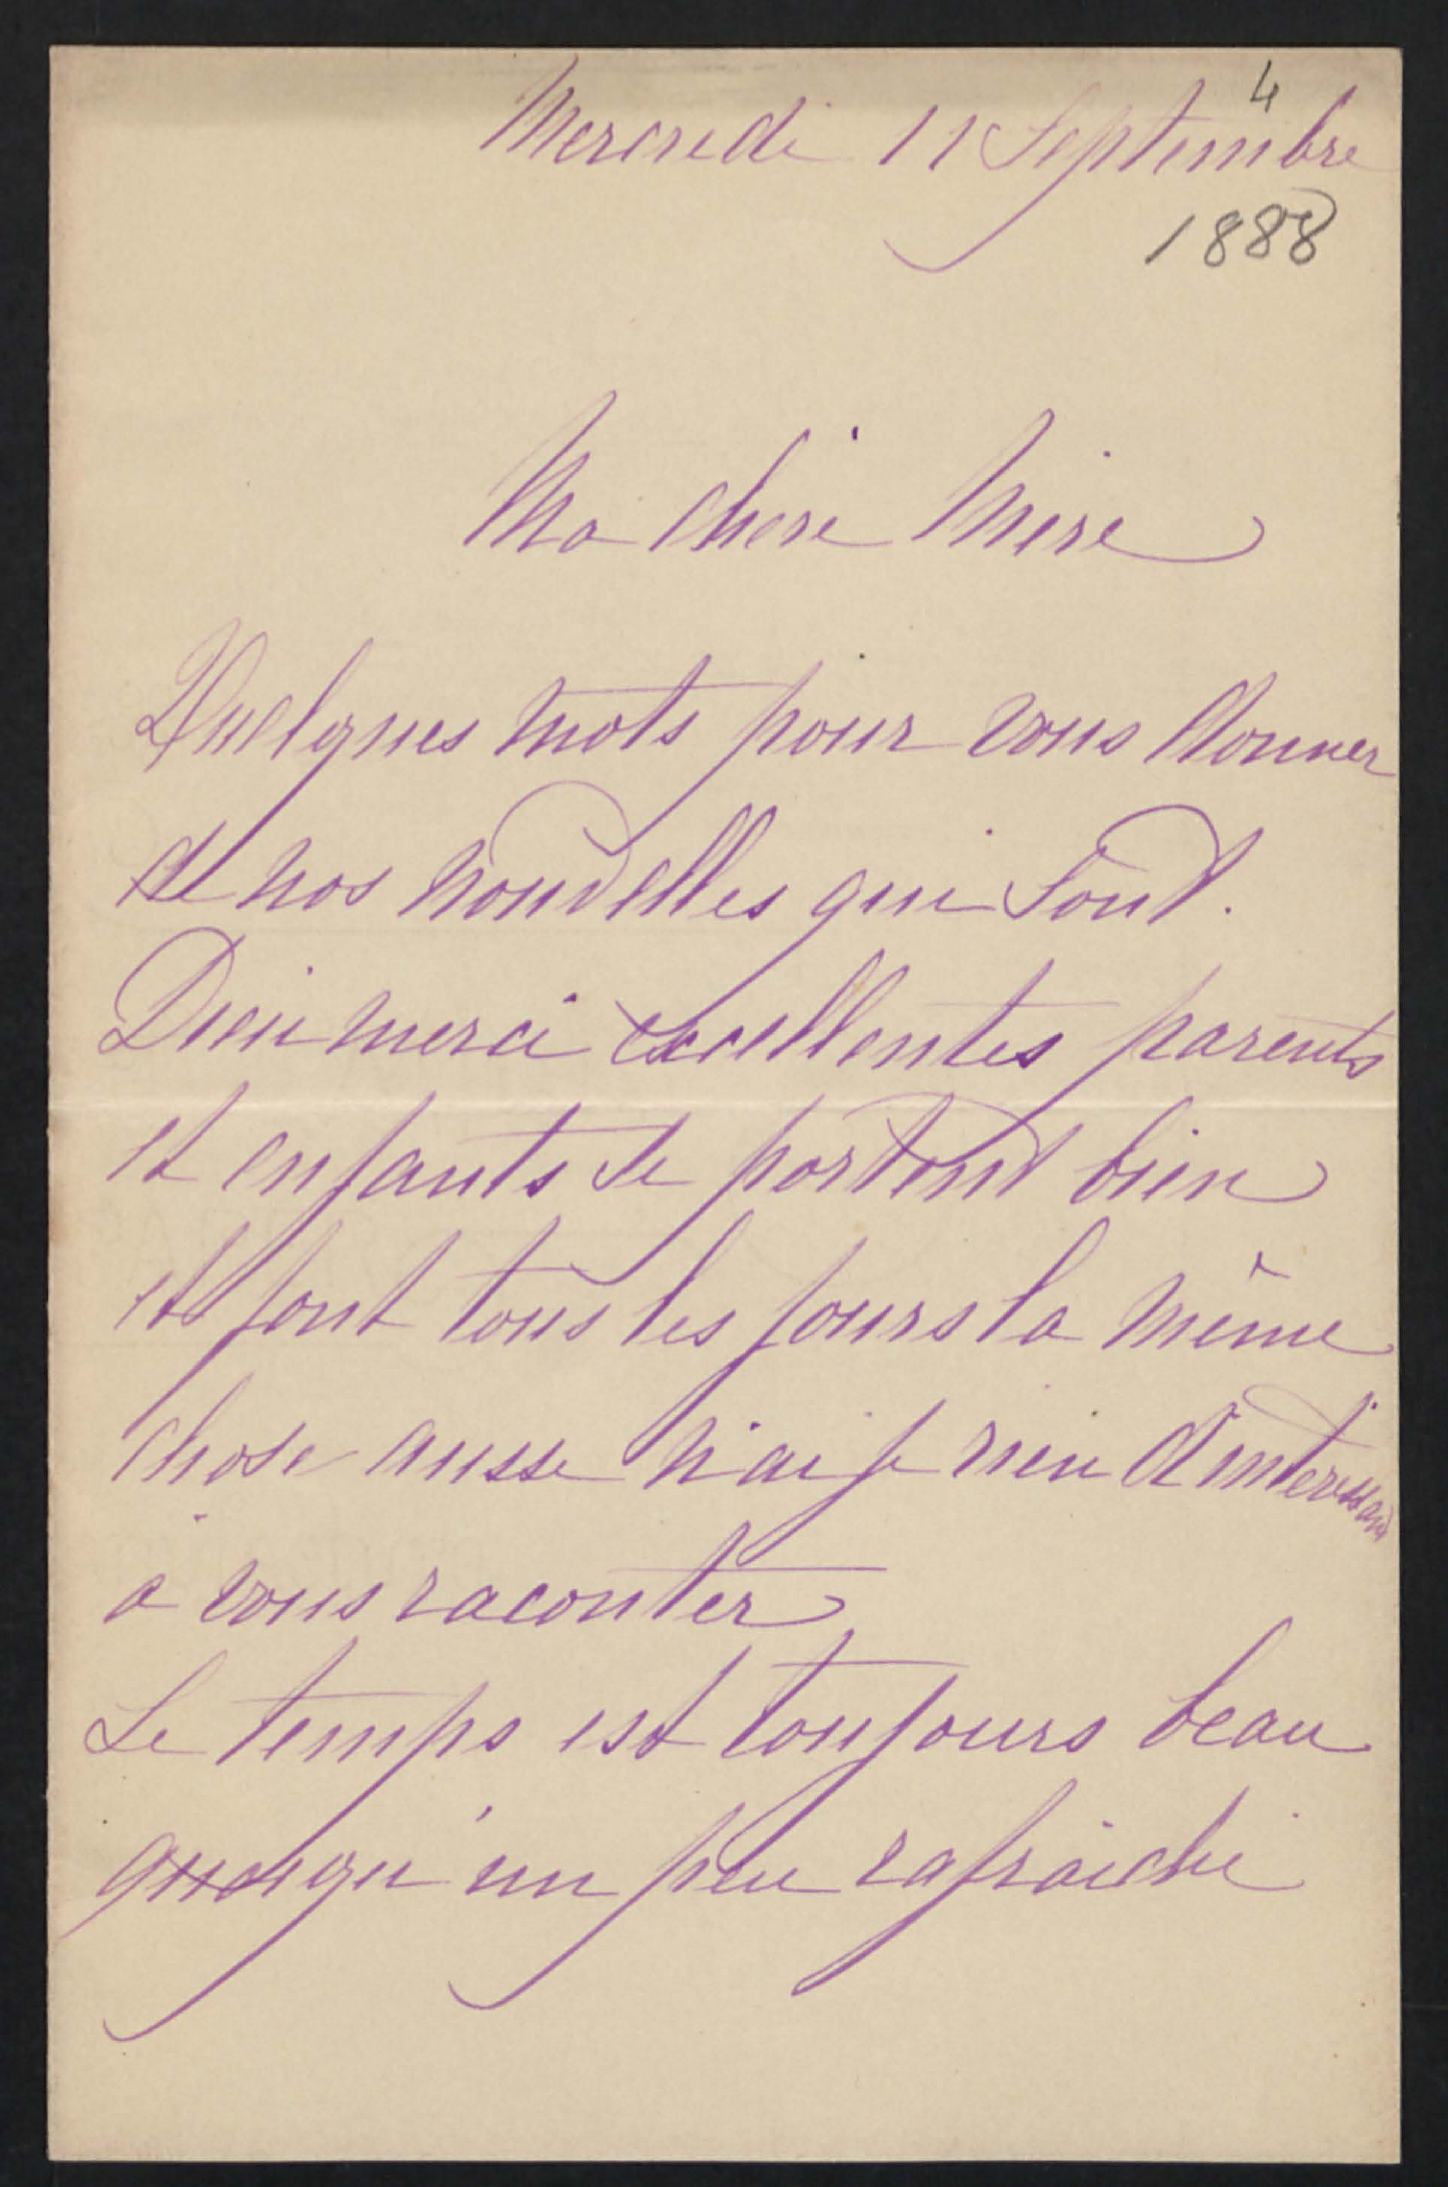 4
Mercredi 11 Septembre
1888
Ma chère Mère
Quelques mots pour vous donner
de nos nouvelles qui sont.
Dieu merci excellentes parents
et enfants se portent bien
et font tous les jours la même
chose aussi n'ai je rien d'interessant
à vous raconter
Le temps est toujours beau
quoiqu'un peu rafraichi